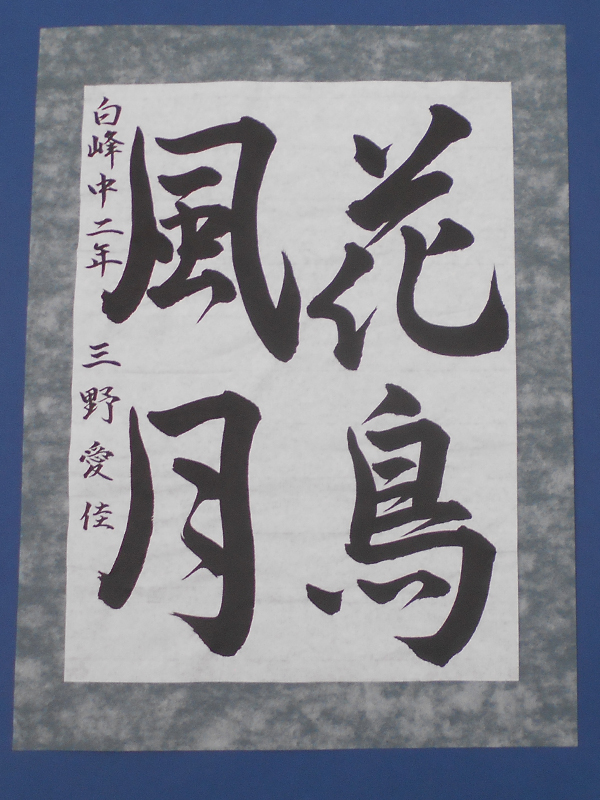 花鳥
風月
白峰中二年 三野愛佳